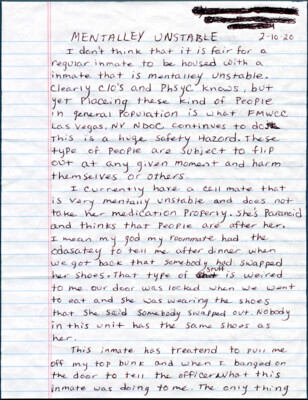 MENTALLEY UNSTABLE 2-10-20
I don't think that it is fair for a
regular inmate to be housed with a
inmate that is mentalley unstable.
Clearly C/O's and PhSyC knows, but
yet Placing these kind of People
in general Population is what FMWCC
Las Vegas, NV NDOC continves to do
This is a huge Safety Hazord. These
type of People are Subject to flip
out at any given moment and harm
themselves or others.
I currently have a cell mate that
is very mentally unstable and does not
take her medication Properly. She's Paranoid
and thinks that People are after her.
I mean my god my roommate had the
odasatey to tell me after dinner when
we got back that somebody had swapped
her shoes. That type of stuff is weired
to me. Our door was locked when we went
to eat and she was wearing the shoes
that She Said Somebody Swapped out. Nobody
in this unit has the Same shoes as
her.
This inmate has treatend to pull me
off my top bunk and when I banged on
the door to tell the officer what this
inmate was doing to me. The only thing